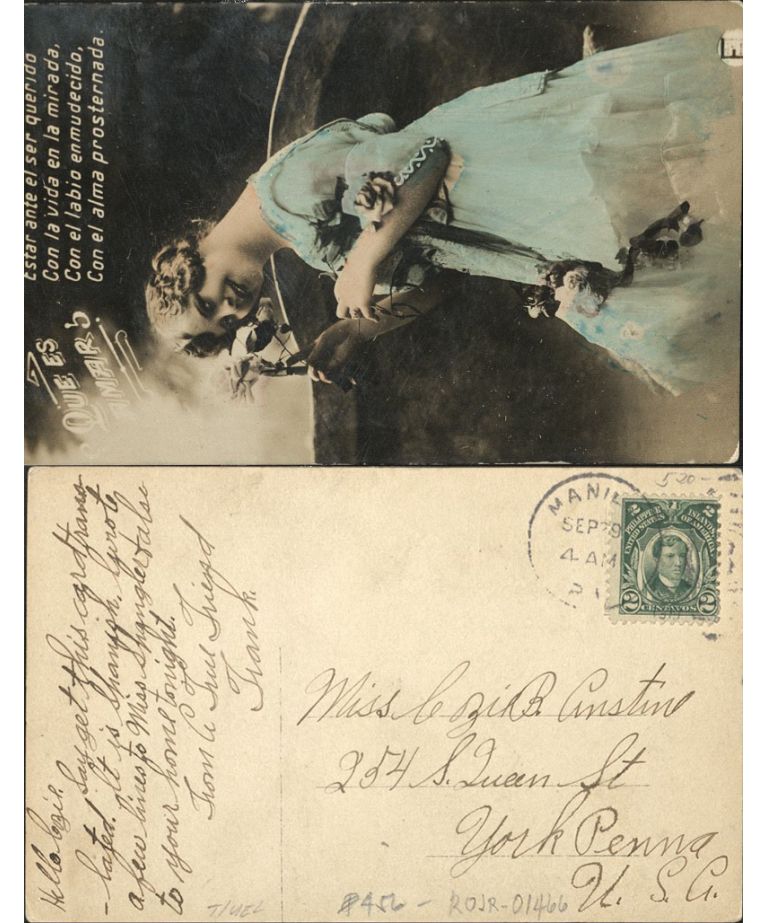 ¿QUE ES
AMAR?
Estar ante el ser querido
Con la vida en la mirada,
Con el labio enmudecido,
Con el alma prosternada.
Hello Cozie.
Say get this card trans-
lated. It is Spanish. I wrote
a few lines to Miss Spangler also
to your home tonight.
From A True Friend
Frank.
MANIL
SEP 29
4 AM
PHILIPPINE ISLANDS
UNITED STATES OF AMERICA
2 CENTAVOS 2
520-
Miss Cozie B. Anstine
254 S. Queen St
York Penna
U. S. A.
456 - ROJR-01466